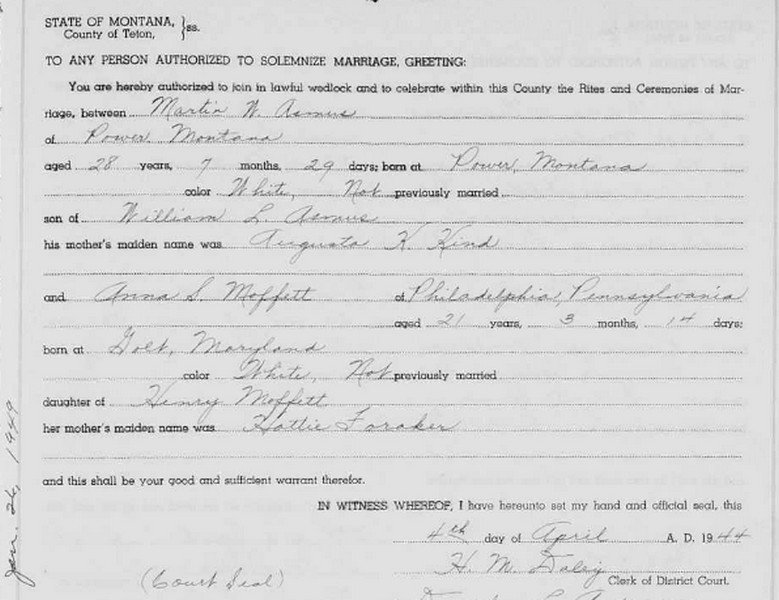 STATE OF MONTANA, } ss.
County of Teton,
TO ANY PERSON AUTHORIZED TO SOLEMNIZE MARRIAGE, GREETING:
You are hereby authorized to join in lawful wedlock and to celebrate within this County the Rites and Ceremonies of Mar-
riage, between Martin W. Asmus
of Power, Montana
aged 28 years, 7 months, 29 days; born at Power, Montana
color White, Not previously married
son of William L. Asmus
his mother's maiden name was Augusta K. Kind
and Anna S. Moffett of Philadelphia, Pennsylvania
aged 21 years, 3 months, 14 days;
born at Golt, Maryland
color White, Not previously married
daughter of Henry Moffett
her mother's maiden name was Hattie Foraker
and this shall be your good and sufficient warrant therefor.
IN WITNESS WHEREOF, I have hereunto set my hand and official seal, this
4th day of April A. D. 1944
H. M. Daley
Clerk of District Court.
(Court Seal)
Jan. 26, 1949